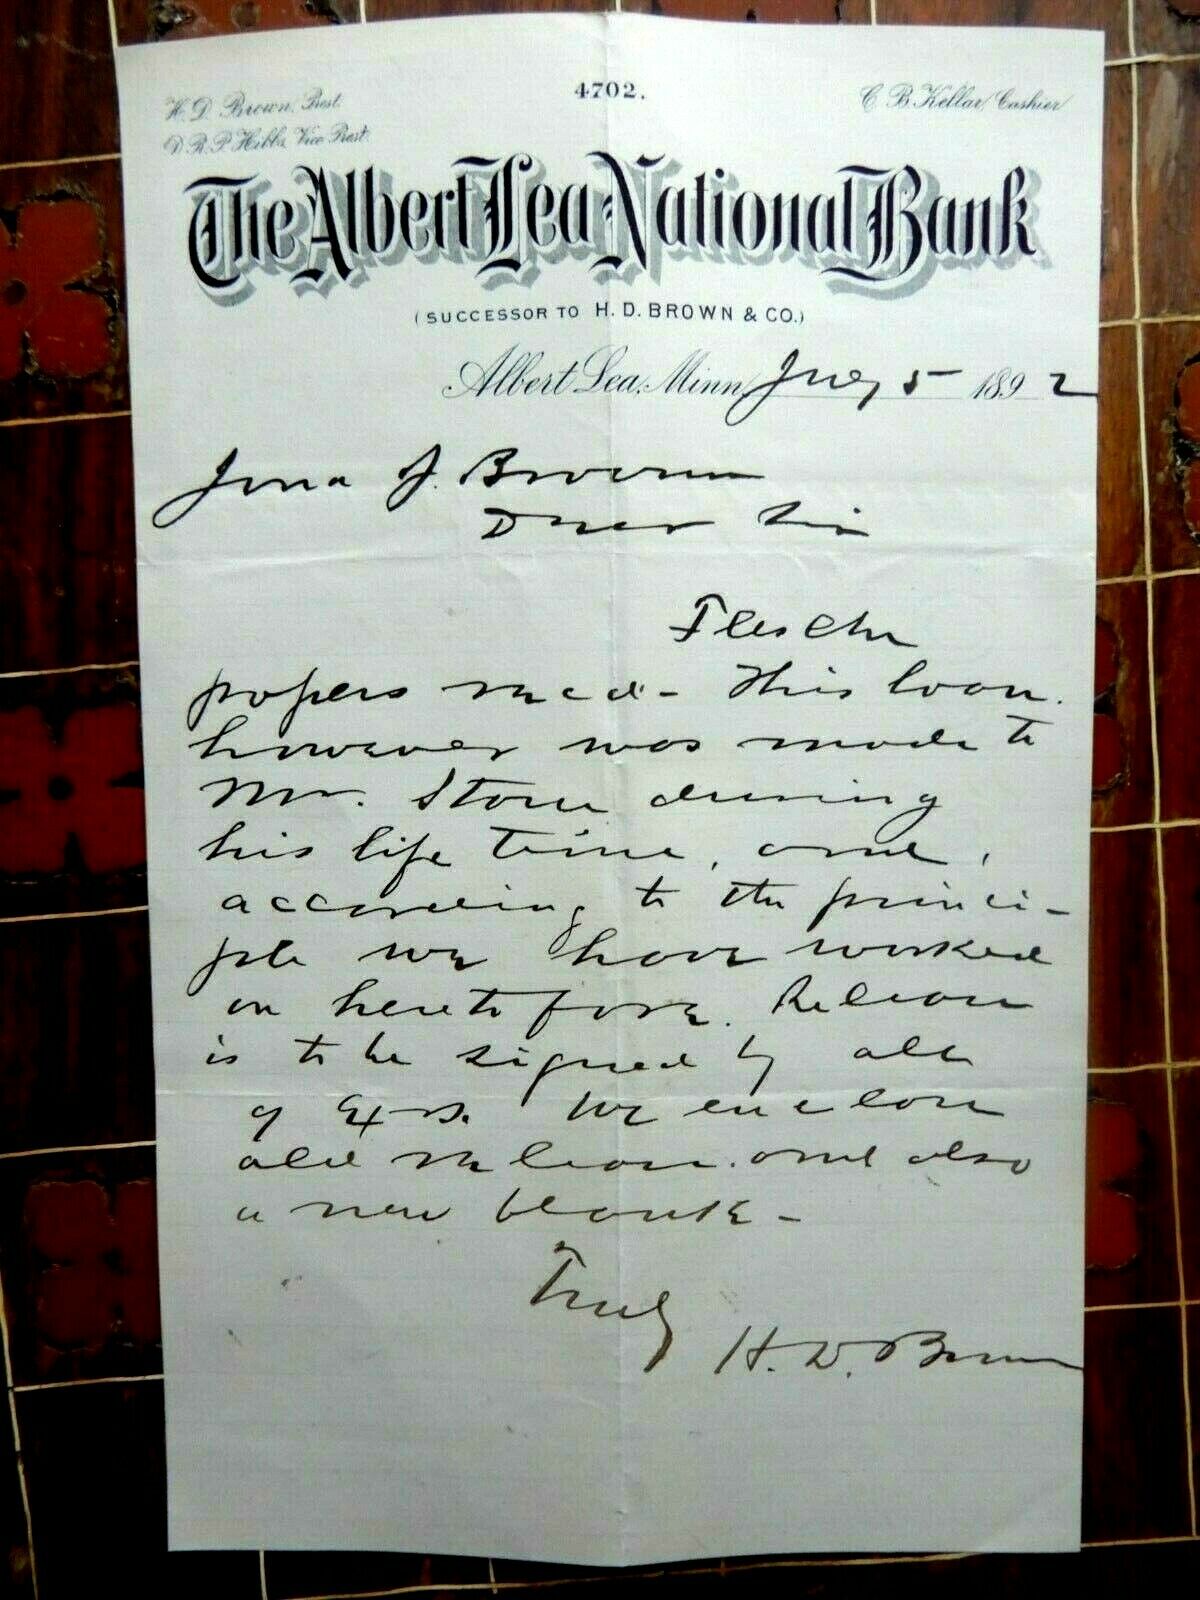 H. D. Brown, Prest.
4702.
C. B. Kellar, Cashier
D. R. P. Hibbs, Vice Prest.
The Albert Lea National Bank
(SUCCESSOR TO H. D. BROWN & CO.)
Albert Lea, Minn, July 5 1892
J. Brown
Dear Sir
papers recd - This loan
however was made to
Mr. Stone during
his life time, and,
according to the princi-
ple we have worked
on heretofore. Release
is to be signed by all
of Exrs. We enclose
old release. and also
a new blank -
Truly
H. D. Brown